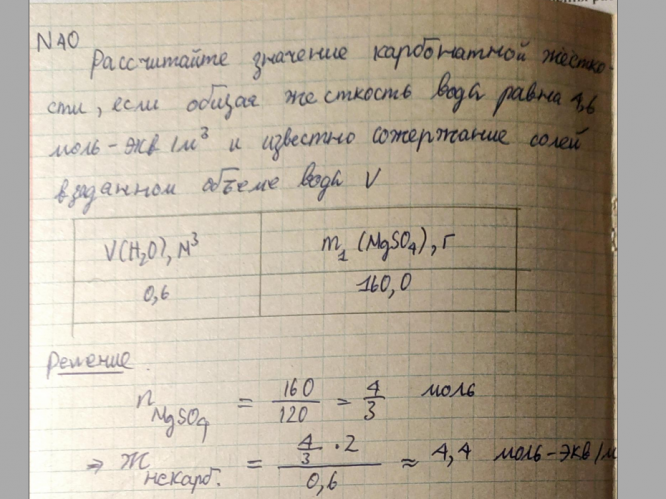 N40
Рассчитайте значение карбонатной жестко-
сти, если общая жесткость вода равна 4,6
моль-экв/м³ и известно сожержание солей
в заданном объеме вода V
V(H₂O), м³ m₁ (MgSO₄), г
0,6 160,0
Решение
n MgSO₄ = 160/120 = 4/3 моль
⇒ Ж некарб. = (4/3 · 2)/0,6 ≈ 4,4 моль-экв/м